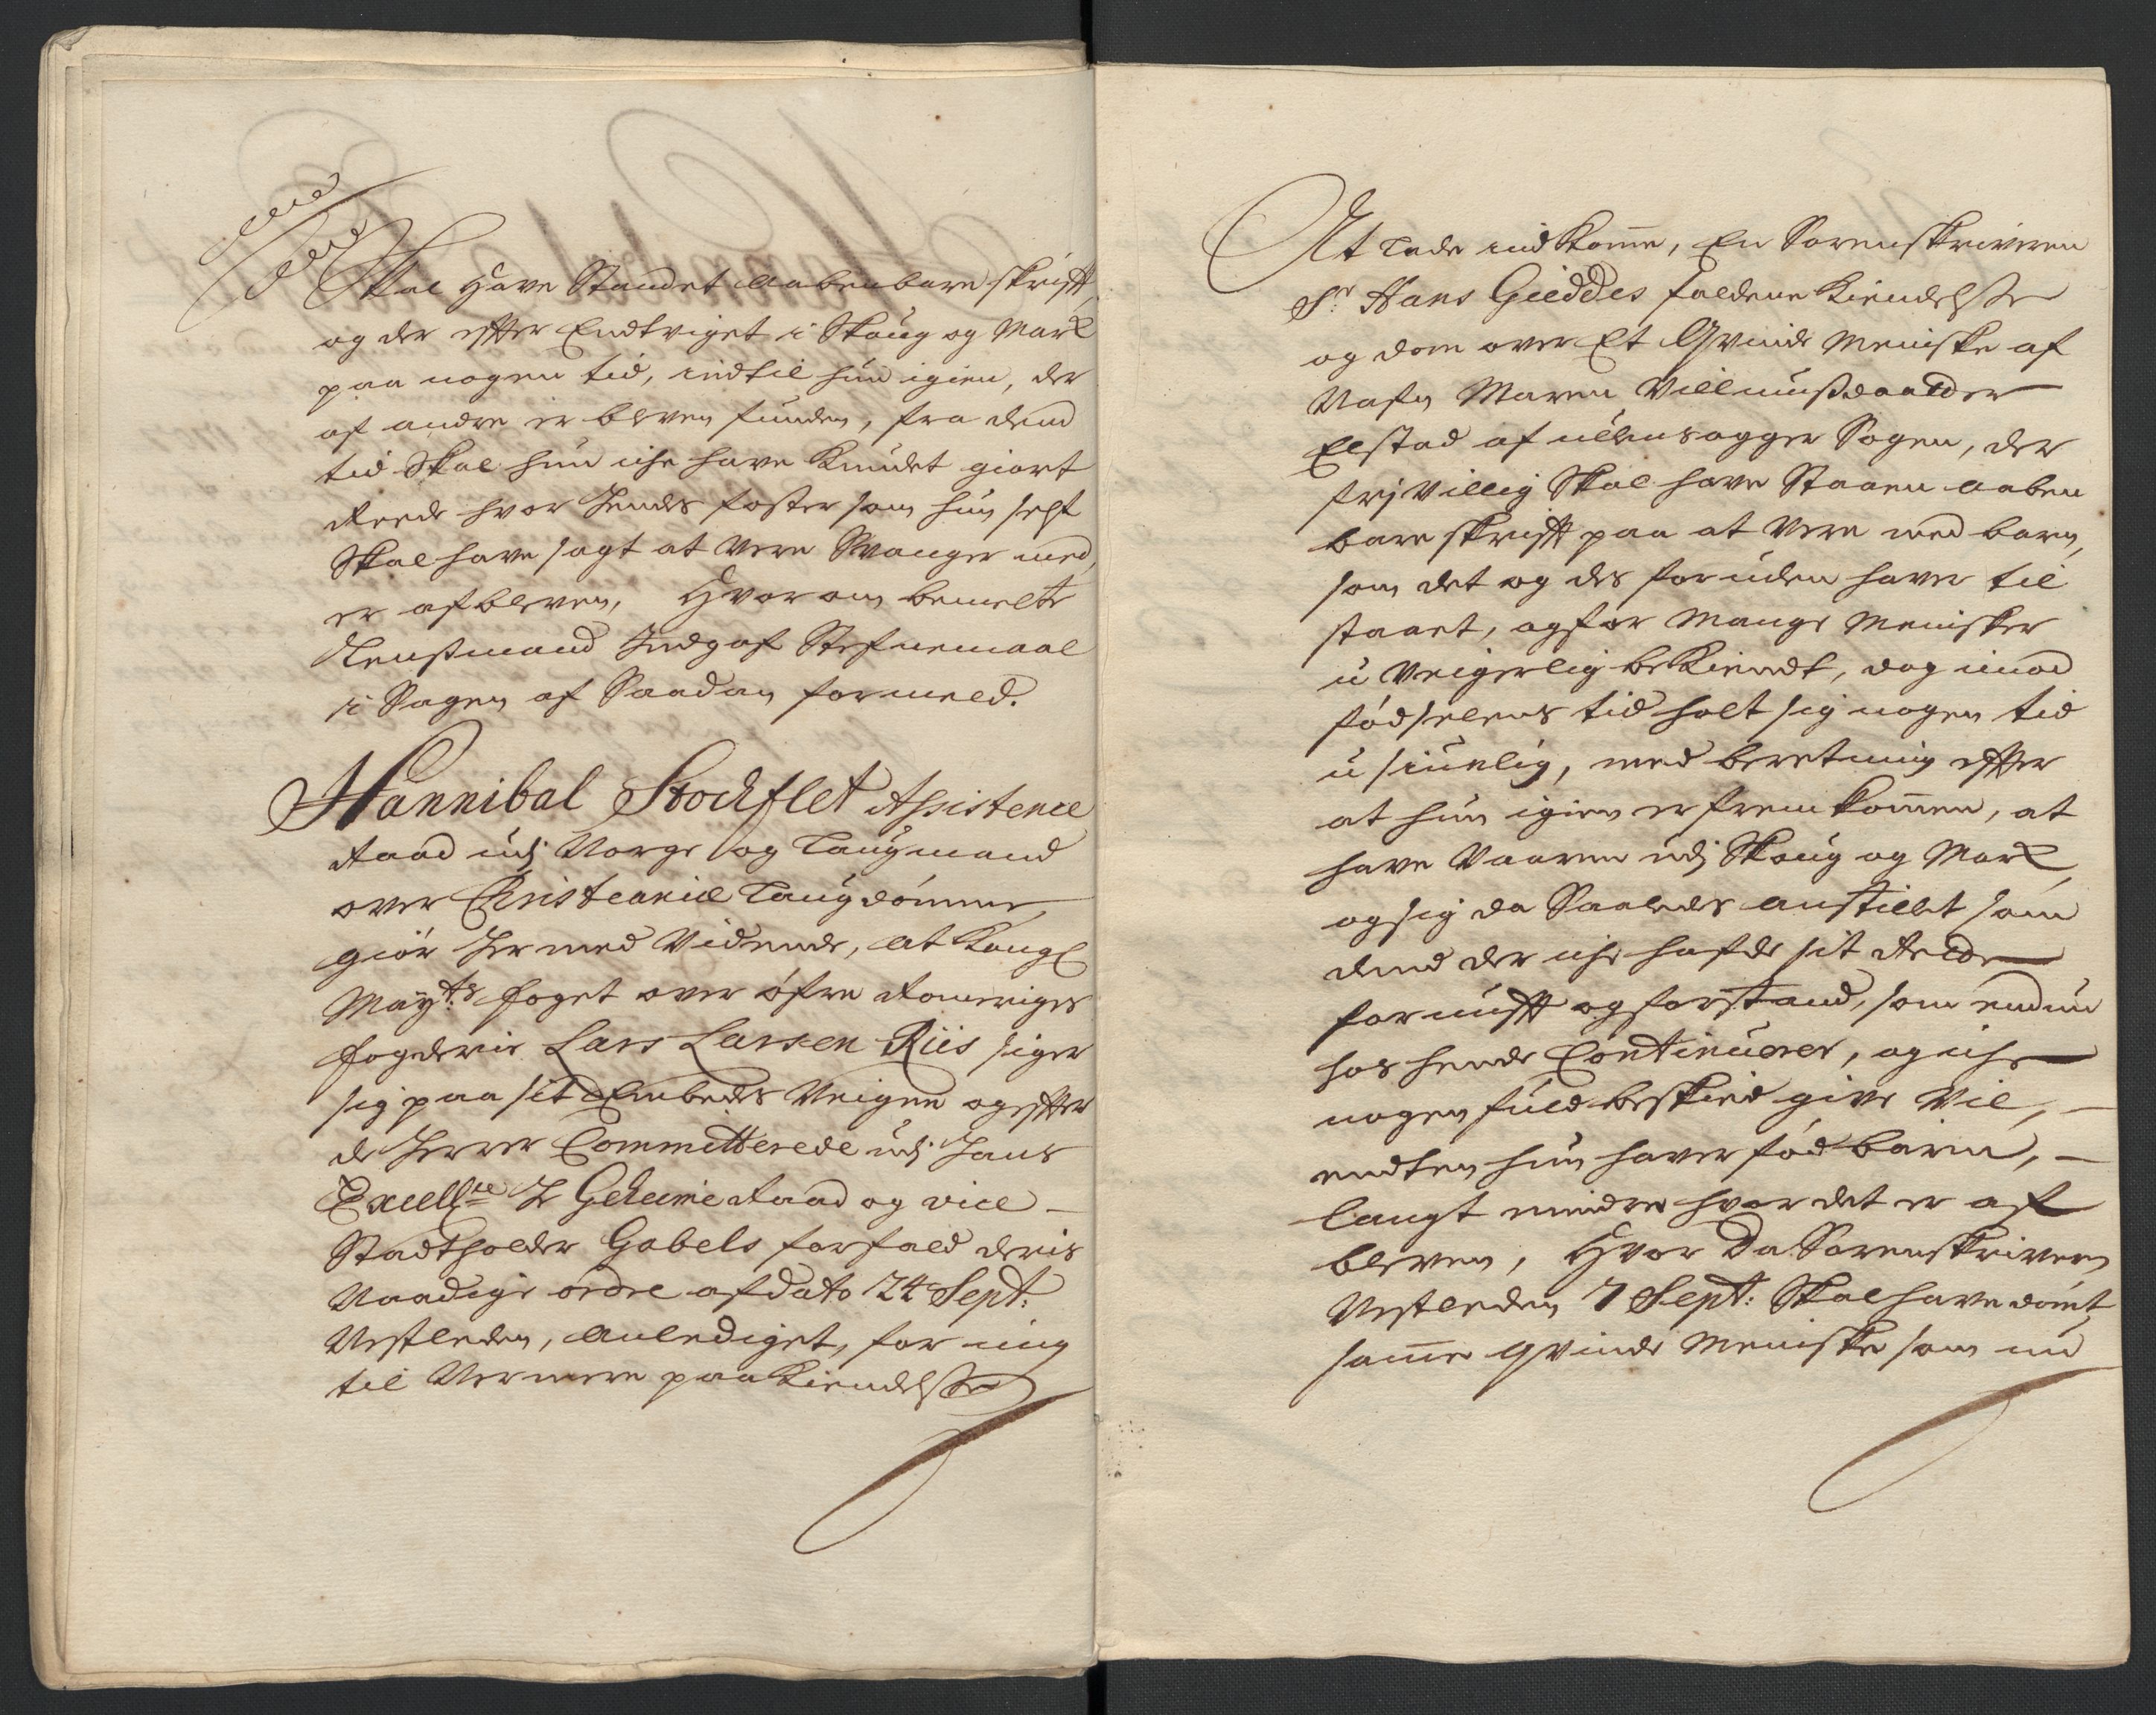 Skal Have Standet aabenbare skrifft,
og der effter Endtviget i Skoug og Mark
paa nogen tid, indtil hun igien, der
af andre er bleven funden, fra dend
tid Skal hun iche have Kundet giort
Reede hvor Hendes foster som hun selft
Skal have sagt at Vere Svanger med,
er afbleven, Hvor om bemelte
Lensmand Indgaf Stefnemaal
i Sagen af Saadan formeld.
Hannibal Stochflet Assistence
Raad udj Norge og Laugmand
over Christianiæ Laugdömme,
giör Her med Vidende, at Kongl
Mayts: foget over öfre Romeriges
fogderie Lars Larsen Riis siger
sig paa sit Embeds Veigne og effter
de Herrer Committerede udj Hans
Excellce Hr Geheime Raad og vice
Stadtholder Gabels forfald deris
Naadige ordre af dato 24 Sept:
Vestleden, anlediget, for mig
til Nermere paakiendelsse
At lade indkomme, En Sorenskriveren
Sr Hans Gieddes faldene Kiendelsse
og dom over Et Qvinde Meniske af
Nafn Maren Villumsdaatter
Elstad af Ullensagger Sogen, der
frj Villig Skal have Staaen aaben
bare skrifft paa at Vere med barn,
som det og des foruden haver til
staaet, og for Mange Menisker
u Veigerlig bekiendt, dog imod
födselens tid holt sig nogen tid
u siunlig, med beretning effter
at hun igien er fremkommen, at
have Vaaren udj Skoug og Mark,
og sig da Saaledes anstillet som
dend der iche hafde sit Rette
fornufft og forstand, som endnu
hos hende Continuerer, og iche
nogen fuld beskied give Vil,
endten hun haver föd barn,
langt mindre hvor det er af
bleven, Hvor Da Sorenskriveren
Vestleden 7 Sept: Skal have dömt,
samme Qvinde Meniske som nu